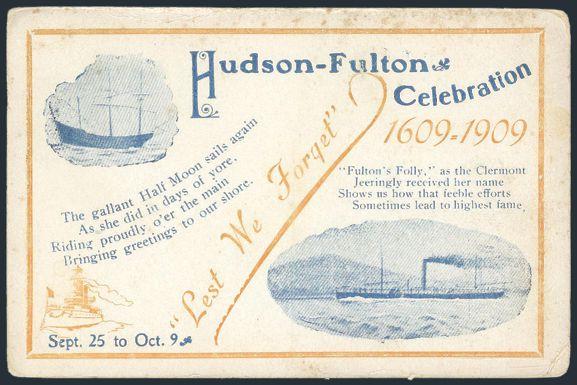 Hudson-Fulton
Celebration
1609-1909
The gallant Half Moon sails again
As she did in days of yore.
Riding proudly o'er the main
Bringing greetings to our shore.
"Lest We Forget"
"Fulton's Folly," as the Clermont
Jeeringly received her name
Shows us how that feeble efforts
Sometimes lead to highest fame
Sept. 25 to Oct. 9